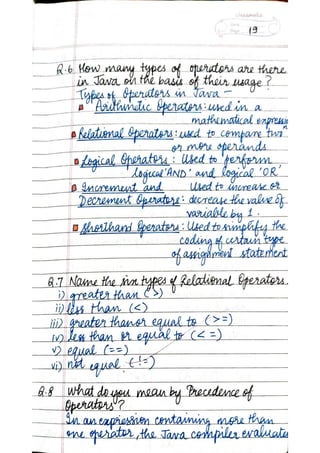 Classmate
Date
Page 19
Q.6 How many types of operators are there
in Java on the basis of their usage?
Types of Operators in Java -
Arithmetic Operators: used in a
mathematical expression
Relational Operators: used to compare two
or more operands
Logical Operators: Used to perform
logical 'AND' and logical 'OR'
Increment and Used to increase or
Decrement Operators: decrease the value of
variable by 1.
Shorthand Operators: Used to simplify the
coding of certain type
of assignment statement
Q.7 Name the six types of Relational Operators.
i) greater than (>)
ii) less than (<)
iii) greater than or equal to (>=)
iv) less than or equal to (<=)
v) equal (==)
vi) not equal (!=)
Q.8 What do you mean by 'Precedence of
Operators'?
In an expression containing more than
one operator, the Java compiler evaluates